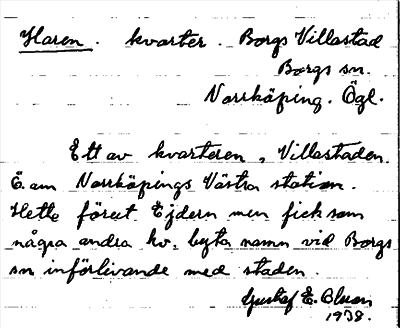 Haren. kvarter. Borgs Villastad
Borgs sn.
Norrköping. Ögl.
Ett av kvarteren, Villastaden.
Ö. om Norrköpings Västra station.
Hette förut Ejdern men fick som
några andra kv. byta namn vid Borgs
sn införlivande med staden.
Gustaf E. Bluson
1938.